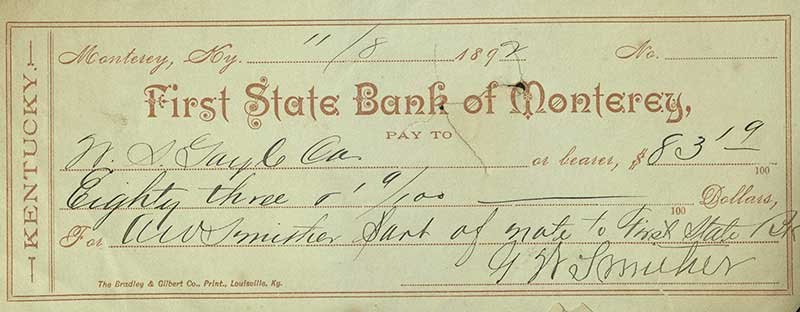 KENTUCKY.
Monterey, Ky. 11/8 1892 No.
First State Bank of Monterey,
PAY TO
W. S. Gayle Co. or bearer, $83 19/100
Eighty three & 19/100 100 Dollars,
For Smither Part of note to First State Bk
W Smither
The Bradley & Gilbert Co., Print., Louisville, Ky.